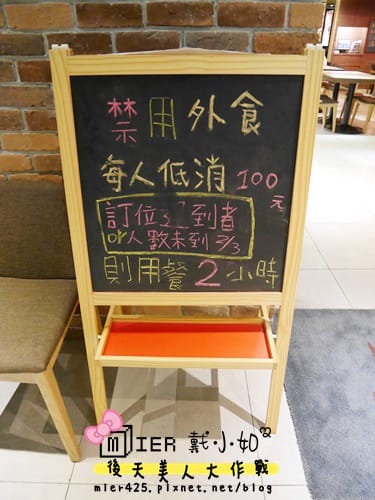 禁用外食
每人低消100元
訂位 到者
or人數未到2/3
則用餐2小時
MIER 戴小如
後天美人大作戰
mier425.pixnet.net/blog